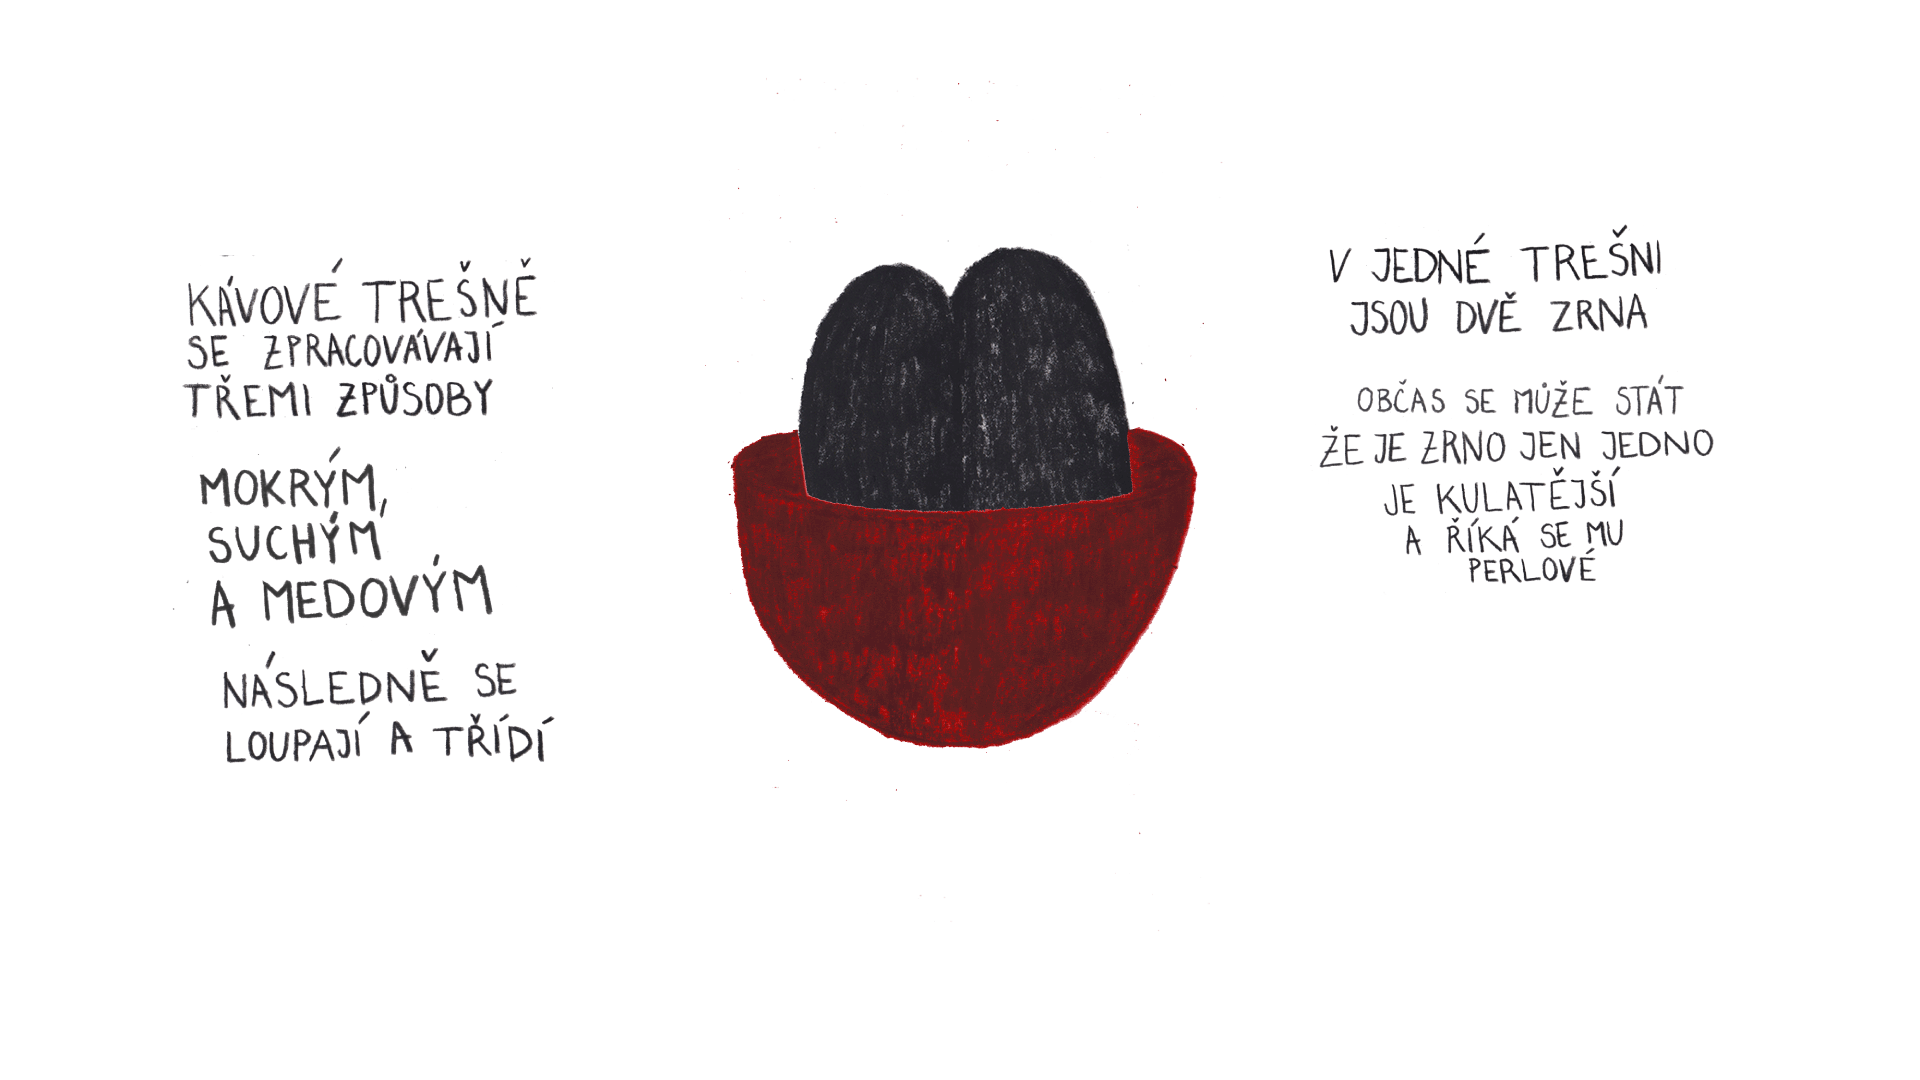 KÁVOVÉ TREŠNĚ
SE ZPRACOVÁVAJÍ
TŘEMI ZPŮSOBY
MOKRÝM,
SUCHÝM
A MEDOVÝM
NÁSLEDNĚ SE
LOUPAJÍ A TŘÍDÍ
V JEDNÉ TREŠNI
JSOU DVĚ ZRNA
OBČAS SE MŮŽE STÁT
ŽE JE ZRNO JEN JEDNO
JE KULATĚJŠÍ
A ŘÍKÁ SE MU
PERLOVÉ